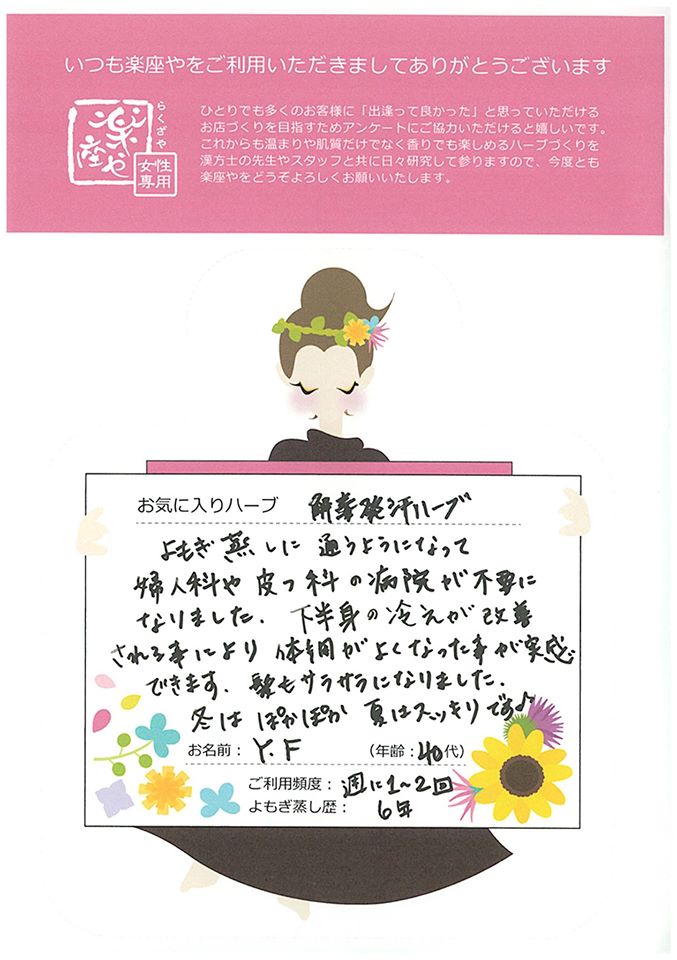 いつも楽座やをご利用いただきましてありがとうございます
らくざや
楽座や
女性専用
ひとりでも多くのお客様に「出逢って良かった」と思っていただける
お店づくりを目指すためアンケートにご協力いただけると嬉しいです。
これからも温まりや肌質だけでなく香りでも楽しめるハーブづくりを
漢方士の先生やスタッフと共に日々研究して参りますので、今度とも
楽座やをどうぞよろしくお願いいたします。
お気に入りハーブ 解毒発汗ハーブ
よもぎ蒸しに通うようになって
婦人科や皮フ科の病院が不要に
なりました。下半身の冷えが改善
される事により体調がよくなった事が実感
できます、髪もサラサラになりました。
冬はぽかぽか夏はスッキリです♪
お名前：Y.F （年齢：40代）
ご利用頻度：週に1～2回
よもぎ蒸し歴：6年